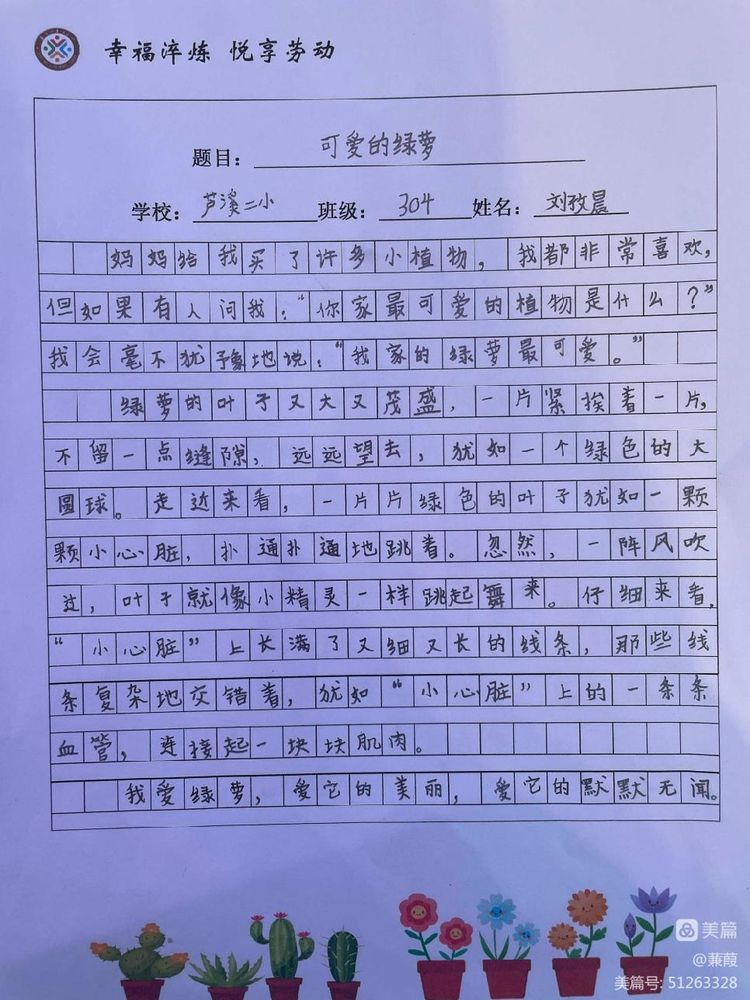 幸福淬炼 悦享劳动
题目：可爱的绿萝
学校：芦溪二小 班级：304 姓名：刘孜晨
妈妈给我买了许多小植物，我都非常喜欢，
但如果有人问我：“你家最可爱的植物是什么？”
我会毫不犹豫地说：“我家的绿萝最可爱。”
绿萝的叶子又大又茂盛，一片紧挨着一片，
不留一点缝隙，远远望去，犹如一个绿色的大
圆球。走近来看，一片片绿色的叶子犹如一颗
颗小心脏，扑通扑通地跳着。忽然，一阵风吹
过，叶子就像小精灵一样跳起舞来。仔细来看，
“小心脏”上长满了又细又长的线条，那些线
条复杂地交错着，犹如“小心脏”上的一条条
血管，连接起一块块肌肉。
我爱绿萝，爱它的美丽，爱它的默默无闻。
美篇
@蒹葭
美篇号: 51263328